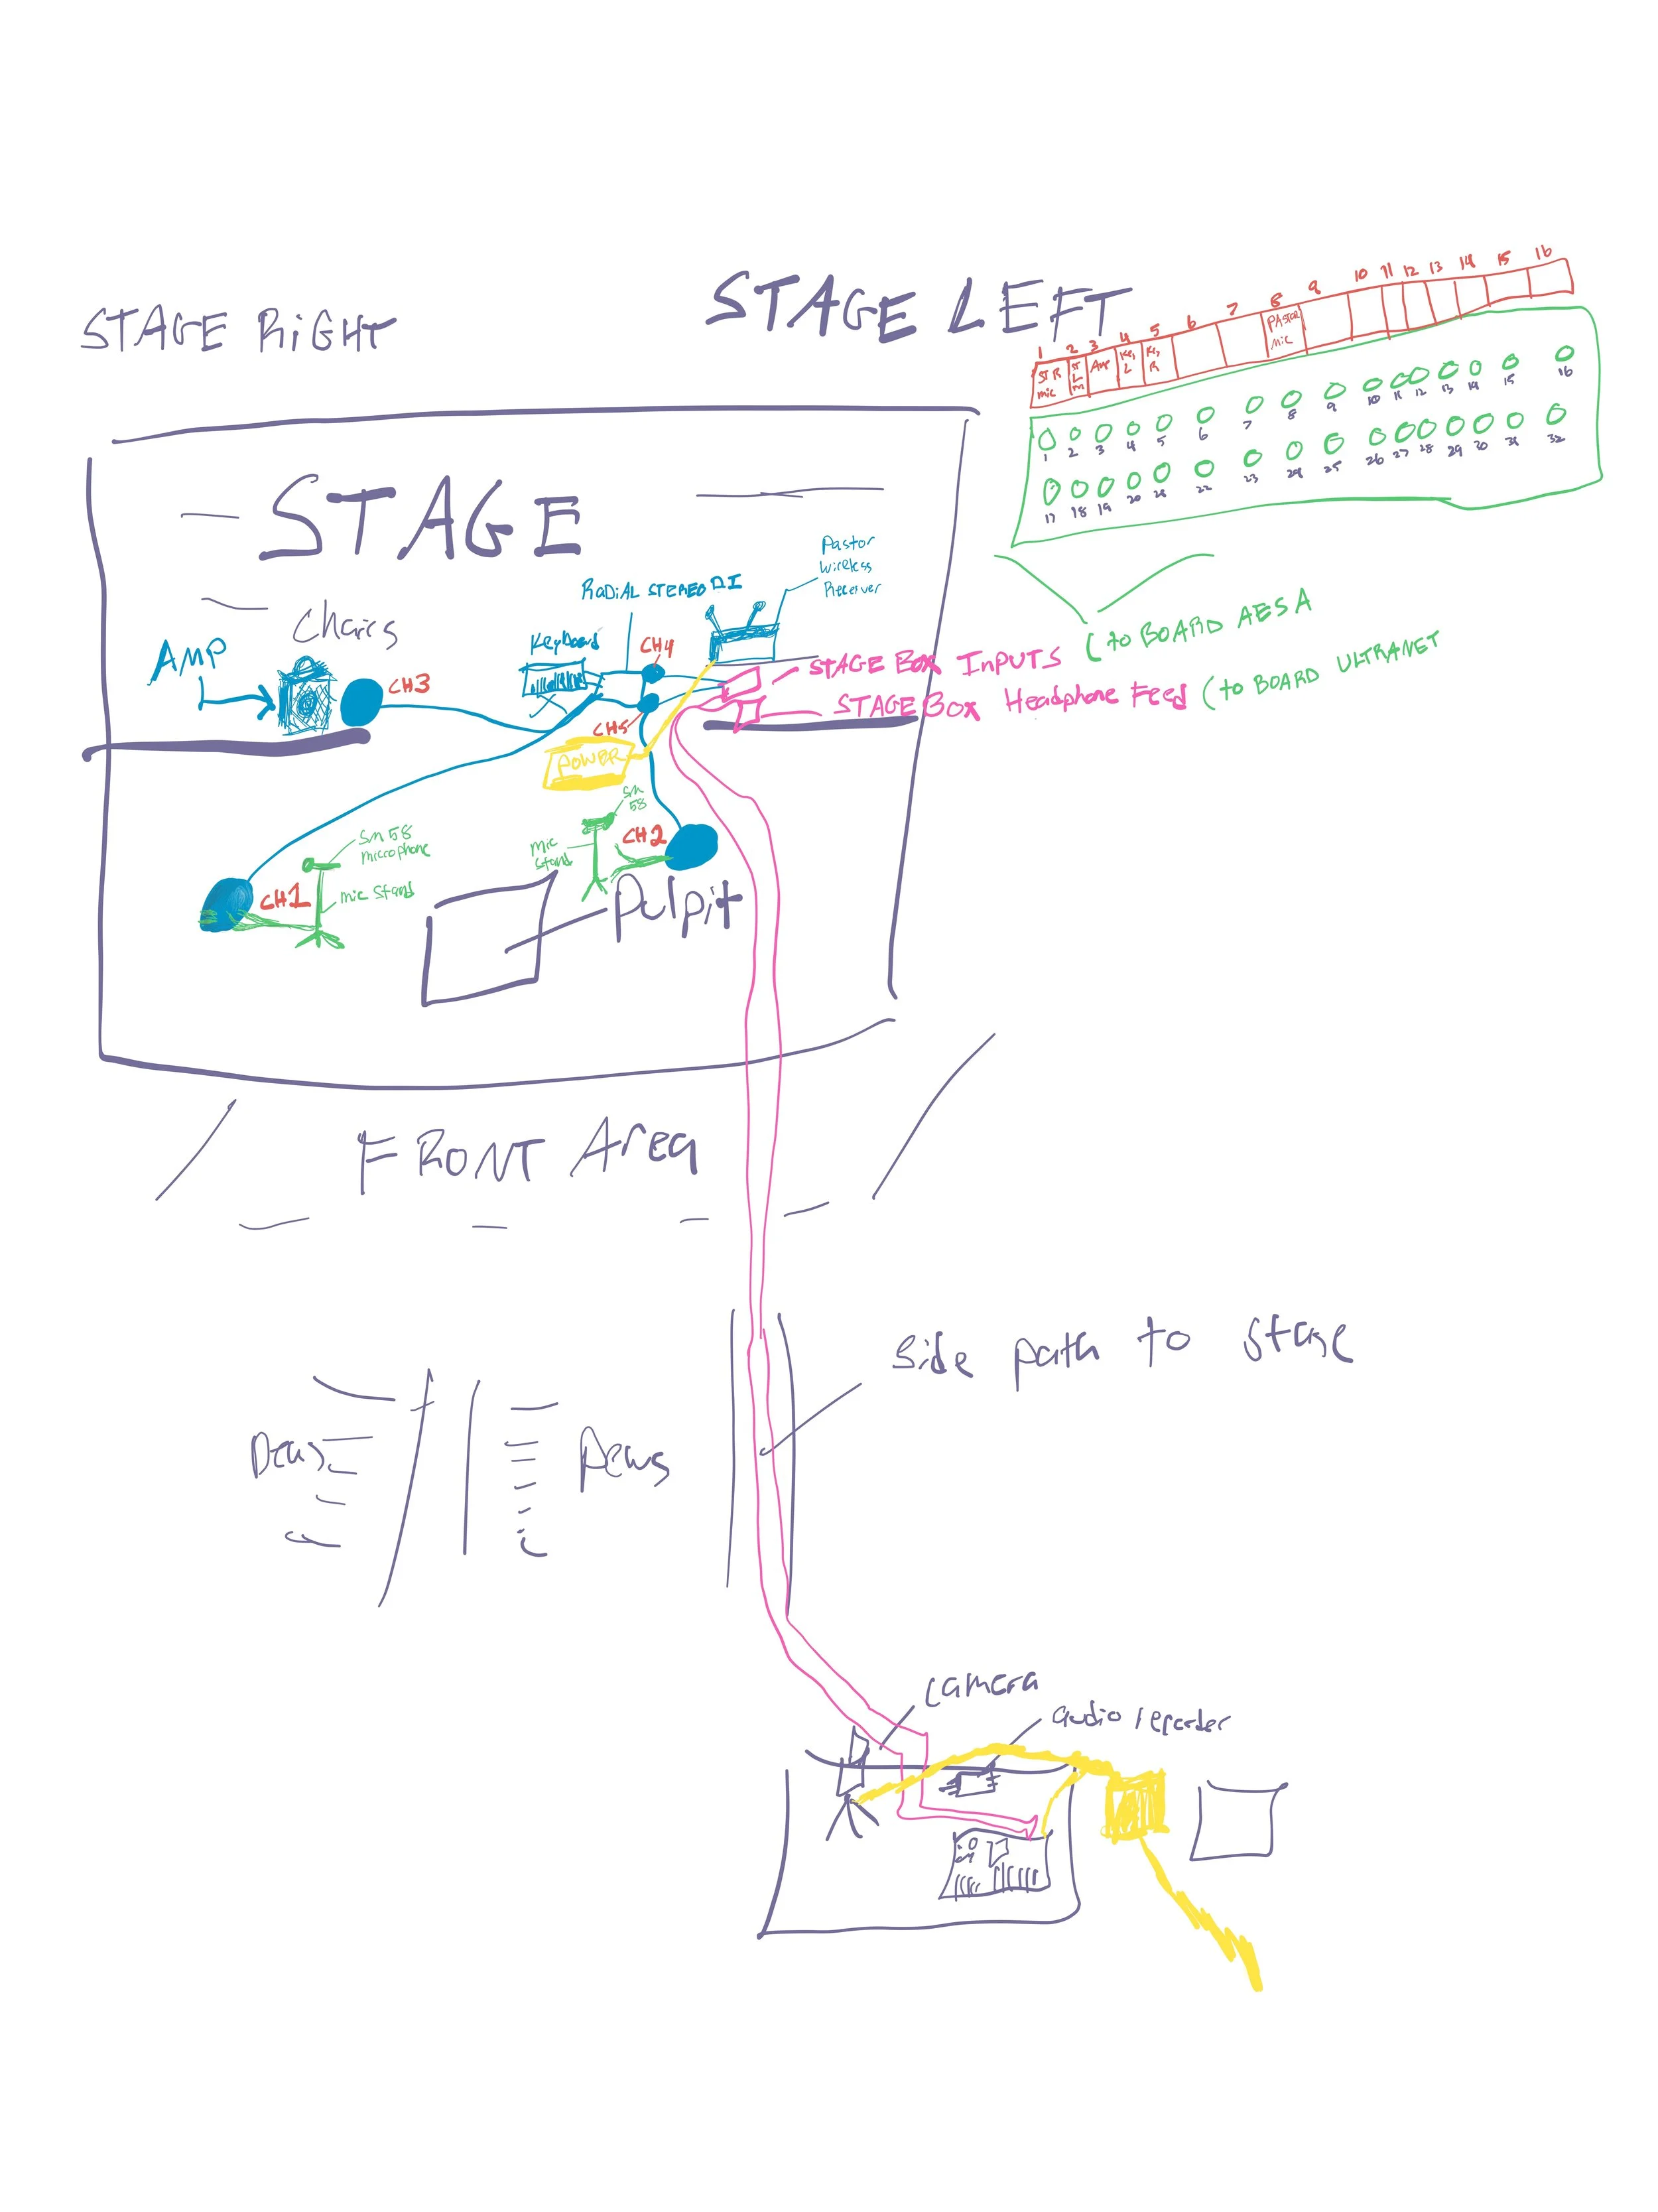 STAGE LEFT
STAGE RIGHT
1 2 3 4 5 6 7 8 9 10 11 12 13 14 15 16
ST R mic
ST L m
Amp
Key L
Key R
PAstor mic
1 2 3 4 5 6 7 8 9 10 11 12 13 14 15 16
17 18 19 20 21 22 23 24 25 26 27 28 29 30 31 32
STAGE
Pastor
Wireless
Receiver
RADiAL STEREO DI
Chairs
AMP
Keyboard
CH4
CH3
CH5
STAGE Box InPUTS (to BOARD AES A
STAGE Box Headphone Feed (to BOARD ULTRANET
POWER
Sm
58
Sm 58
microphone
mic
Stand
CH2
CH1
mic Stand
Pulpit
FRONT Area
Side path to stage
Pews
Pews
Camera
audio recorder